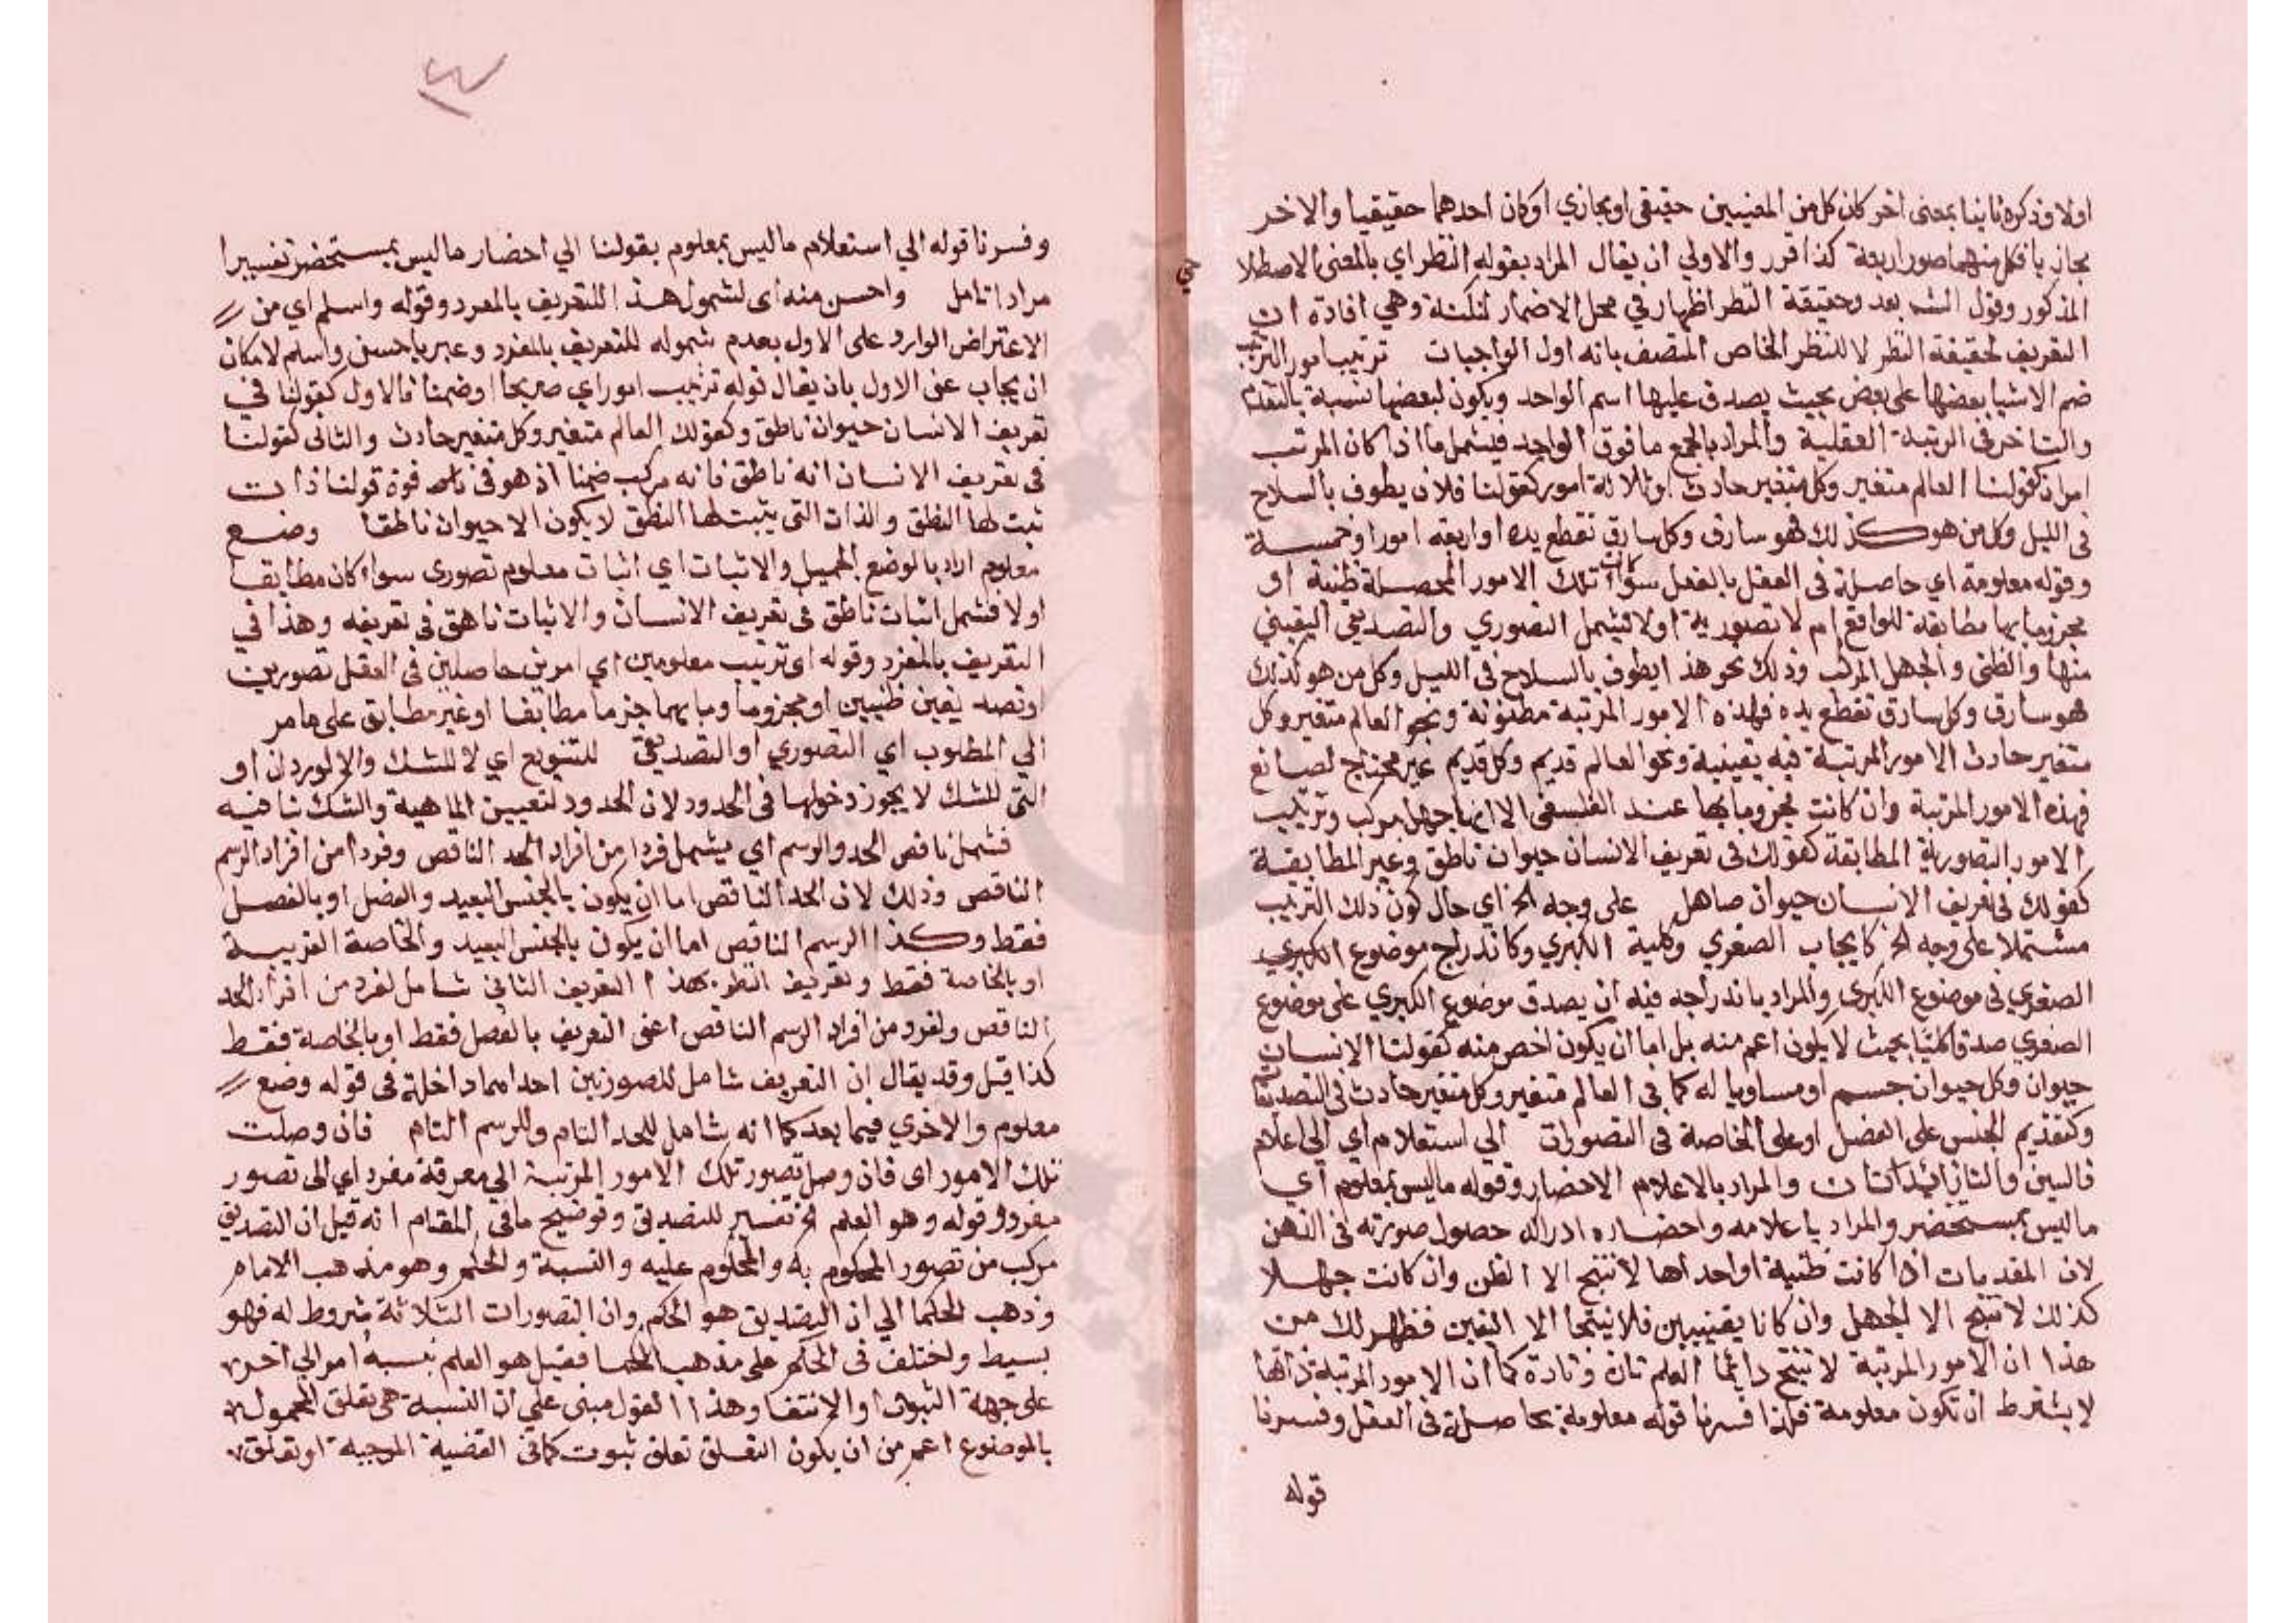 اولا وذكره ثانيا بمعنى اخر كان كل من المعنيين حقيقى او مجازي او كان احدهما حقيقيا والاخر
مجازيا فكل منهما صور اربعة كذا قرر والاولي ان يقال المراد بقوله النظر اي بالمعنى الاصطلا
حي
المذكور وقول الشـ بعد وحقيقة النظر اظهار في محل الاضمار لنكتة وهي افادة ان
التعريف لحقيقة النظر لا للنظر الخاص المتصف بانه اول الواجبات ترتيب امور الترتيب
ضم الاشيا بعضها على بعض بحيث يصدق عليها اسم الواحد ويكون لبعضها نسبة بالتقدم
والتاخر فى الرتبة العقلية والمراد بالجمع ما فوق الواحد فيشمل ما اذا كان المرتب
امران كقولنا العالم متغير وكل متغير حادث او ثلاثة امور كقولنا فلان يطوف بالسلاح
فى الليل وكل من هو كذلك فهو سارق وكل سارق تقطع يده او اربعه امور او خمسة
وقوله معلومة اي حاصلة فى العقل بالفعل سوا كانت تلك الامور المحصلة ظنية او
مجزوما بها مطابقة للواقع ام لا تصورية اولا فيشمل التصوري والتصديقى اليقيني
منها والظنى والجهل المركب وذلك نحو هذا يطوف بالسلاح فى الليل وكل من هو كذلك
هو سارق وكل سارق تقطع يده فهذه الامور المرتبة مظنونة ونحو العالم متغير وكل
متغير حادث الامور المرتبة فيه يقينية ونحو العالم قديم وكل قديم غير محتاج لصانع
فهذه الامور المرتبة وان كانت مجزوما بها عند الفلسفى الا انها جهل مركب وترتيب
الامور التصورية المطابقة كقولك فى تعريف الانسان حيوان ناطق وغير المطابقة
كقولك فى تعريف الانسان حيوان صاهل على وجه الخ اي حال كون ذلك الترتيب
مشتملا على وجه الخ كايجاب الصغري وكلية الكبري وكاندراج موضوع الكبري
الصغري فى موضوع الكبرى والمراد باندراجه فيه ان يصدق موضوع الكبري على موضوع
الصغري صدقا كليا بحيث لا يكون اعم منه بل اما ان يكون اخص منه كقولنا الانسان
حيوان وكل حيوان جسم او مساويا له كما فى العالم متغير وكل متغير حادث فى التصديقات
وكتقديم الجنس على الفصل او على الخاصة فى التصورات الي استعلام اي الى اعلام
فالسين والتا زائدتان والمراد بالاعلام الاحضار وقوله ما ليس بمعلوم اي
ما ليس بمستحضر والمراد باعلامه واحضاره ادراكه حصول صورته فى الذهن
لان المقدمات اذا كانت ظنية او احداها لا تنتج الا الظن وان كانت جهلا
كذلك لا تنتج الا الجهل وان كانا يقينيين فلا ينتجا الا اليقين فظهر لك من
هذا ان الامور المرتبة لا تنتج دائما العلم وتارة كما ان الامور المرتبة ذاتها
لا يشترط ان تكون معلومة فلهذا فسرنا قوله معلومة بحاصلة فى العقل وفسرنا
قوله
وفسرنا قوله الي استعلام ما ليس بمعلوم بقولنا الي احضار ما ليس بمستحضر تفسيرا
مرادا تامل واحسن منه اى لشمول هذا التعريف بالمفرد وقوله واسلم اي من
الاعتراض الوارد على الاول بعدم شموله للتعريف بالمفرد وعبر باحسن واسلم لامكان
ان يجاب عنى الاول بان يقال قوله ترتيب امور اي صريحا او ضمنا فالاول كقولنا في
تعريف الانسان حيوان ناطق وكقولك العالم متغير وكل متغير حادث والثانى كقولنا
فى تعريف الانسان انه ناطق فانه مركب ضمنا اذ هو فى قوة قولنا ذات
ثبت لها النطق والذات التى يثبت لها النطق لا يكون الا حيوان ناطقا وضع
معلوم اراد بالوضع الحمل والاثبات اي اثبات معلوم تصورى سواء كان مطابقا
اولا فشمل اثبات ناطق فى تعريف الانسان والاثبات ناهق فى تعريفه وهذا في
التعريف بالمفرد وقوله او ترتيب معلومين اي امرين حاصلين فى العقل تصورين
او تصديقين ظنيين او مجزوما ومابهما جزما مطابقا او غير مطابق على ما مر
الي المطلوب اي التصوري او التصديقى للتنويع اي لا للشك والا لورد ان او
التى للشك لا يجوز دخولها فى الحدود لان الحدود لتعيين الماهية والشك ينافيه
فشمل ناقص الحد والرسم اي يشمل فردا من افراد الحد الناقص وفردا من افراد الرسم
الناقص وذلك لان الحد الناقص اما ان يكون بالجنس البعيد والفصل او بالفصل
فقط وكذا الرسم الناقص اما ان يكون بالجنس البعيد والخاصة القريبة
او بالخاصة فقط وتعريف النظر بهذا التعريف الثاني شامل لفرد من افراد الحد
الناقص ولفرد من افراد الرسم الناقص اعنى التعريف بالفصل فقط او بالخاصة فقط
كذا قيل وقد يقال ان التعريف شامل للصورتين احداهما داخلة فى قوله وضع
معلوم والاخري فيما بعد كما انه شامل للحد التام وللرسم التام فان وصلت
تلك الامور اى فان وصل تصور تلك الامور المرتبة الي معرفة مفرد اي الى تصور
مفرد وقوله وهو العلم الخ تفسير للتصديق وتوضيح ما فى المقام انه قيل ان التصديق
مركب من تصور المحكوم به والمحكوم عليه والنسبة والحكم وهو مذهب الامام
وذهب الحكما الي ان التصديق هو الحكم وان التصورات الثلاثة شروط له فهو
بسيط واختلف فى الحكم على مذهب الحكما فقيل هو العلم بنسبة امر الي اخر
على جهة الثبوت او الانتفا وهذا القول مبنى على ان النسبة هى تعلق المحمول
بالموضوع اعم من ان يكون التعلق تعلق ثبوت كما فى القضية الموجبة او تعلق